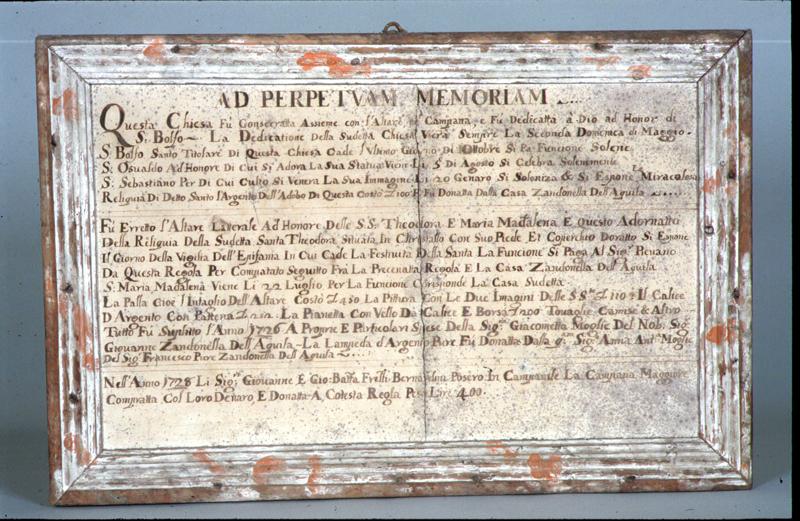 AD PERPETVAM MEMORIAM
Questa Chiesa Fù Consecratta Assieme con l'Altare, e Campana, e Fù Dedicatta à Dio ad Honor di
S: Bolfo ~ La Dedicatione Della Sudetta Chiesa Vierà Sempre La Seconda Domenica di Maggio.
S. Bolfo Santo Titolare Di Questa Chiesa Cade l'Ultimo Giorno Di Ottobre Si Fa Funcione Solene
S: Osualdo Ad Honore Di Cui Si Adora La Sua Statua Viene Li 5 Di Agosto Si Celebra Solenemente
S: Sebastiano Per Di Cui Culto Si Venera La Sua Immagine Li 20 Genaro Si Soloniza & Si Espone La Miracolosa
Reliquia Di Detto Santo l'Argento Dell'Adobo Di Questa Costò £ 100 E Fù Donatta Dalla Casa Zandonella Dell'Aquila
Fù Erretto l'Altare Laterale Ad Honore Delle S.S. Theodora E Maria Madalena E Questo Adornatto
Della Reliquia Della Sudetta Santa Theodora Situata In Christallo Con Suo Piede Et Coperchio Doratto Si Espone
Il Giorno Della Vigilia Dell'Epifania In Cui Cade La Festività Della Santa La Funcione Si Paga Al Sig. Pievano
Da Questa Regola Per Compatato Seguitto Frà La Precenatta Regola E La Casa Zandonella Dell'Aquila
S: Maria Madalena Viene Li 22 Luglio Per La Funcione Corisponde La Casa Sudetta
La Palla Cioè l'Intaglio Dell'Altare Costò £ 480 La Pittura Con Le Due Imagini Delle S.S. £ 110 : Il Calice
D Argento Con Pattena £ 212 La Pianetta Con Vello Da Calice E Borsa £ 200 Tovaglie Camise & Altro
Tutto Fù Suplito l'Anno 1726 A Proprie E Particolari Spese Della Sig. Giacometta Moglie Del Nob. Sig
Giovanne Zandonella Dell'Aquila La Lampeda d'Argento Pure Fù Donatta Dalla q. Sig. Anna Ant. Moglie
Del Sig. Francesco Piore Zandonella Dell Aquila
Nell'Anno 1728 Li Sig. Giovanne E Gio: Batta Frelli Bernardini Posero In Campanile La Campana Maggiore
Compratta Col Loro Denaro, E Donatta A Cotesta Regola Pesa Lire 400.